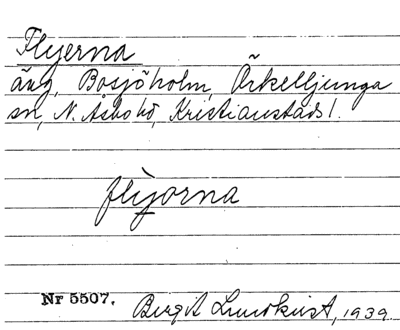 Flyerna
äng, Bosjöholm, Örkelljunga
sn, N. Åsbo hd, Kristianstads l.
flỳorna
Nr 5507. Birgit Lundkvist, 1939